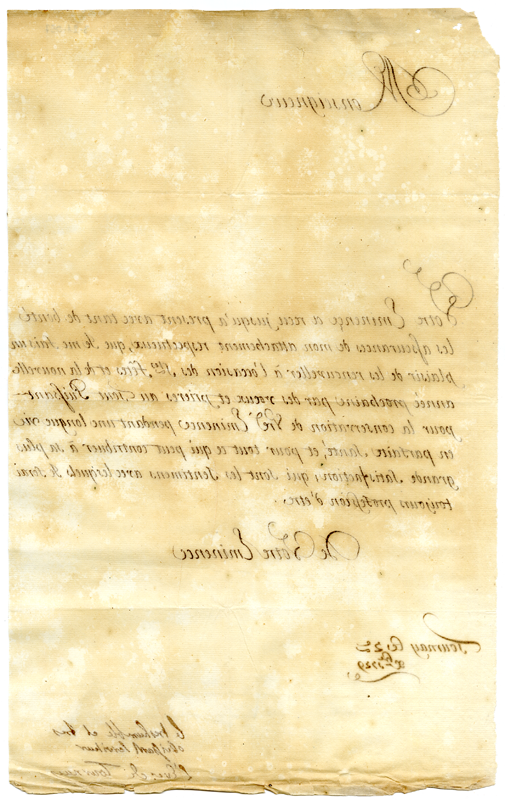 Monseigneur
Votre Eminence a recu jusqu'a present avec tant de bonté
les assurances de mon attachement respectueux, que je me fais un
plaisir de les renouveller à l'ocasion des Stes fetes et de la nouvelle
année prochaine par des vœux et prieres au Tout Puissant
pour la conservation de Vre Eminence pendant une longue vie
en parfaite santé, et pour tout ce qui peut contribuer à sa plus
grande satisfaction; qui sont les sentimens avec lesquels je ferai
toujours profession d'etre.
De Votre Eminence
Tournay le 22
xbre 1729
Le treshumble et tres
obeissant serviteur
L'Eveq. de Tournay